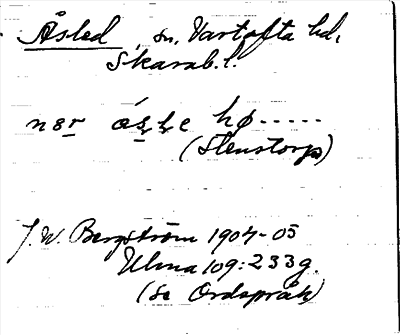 Åsled sn. Vartofta hd,
Skarab. l.
nør hø-----
(Stenstorp)
J. W. Bergström 1904-05
Ulma 109:233 g.
(Se Ordspråk)